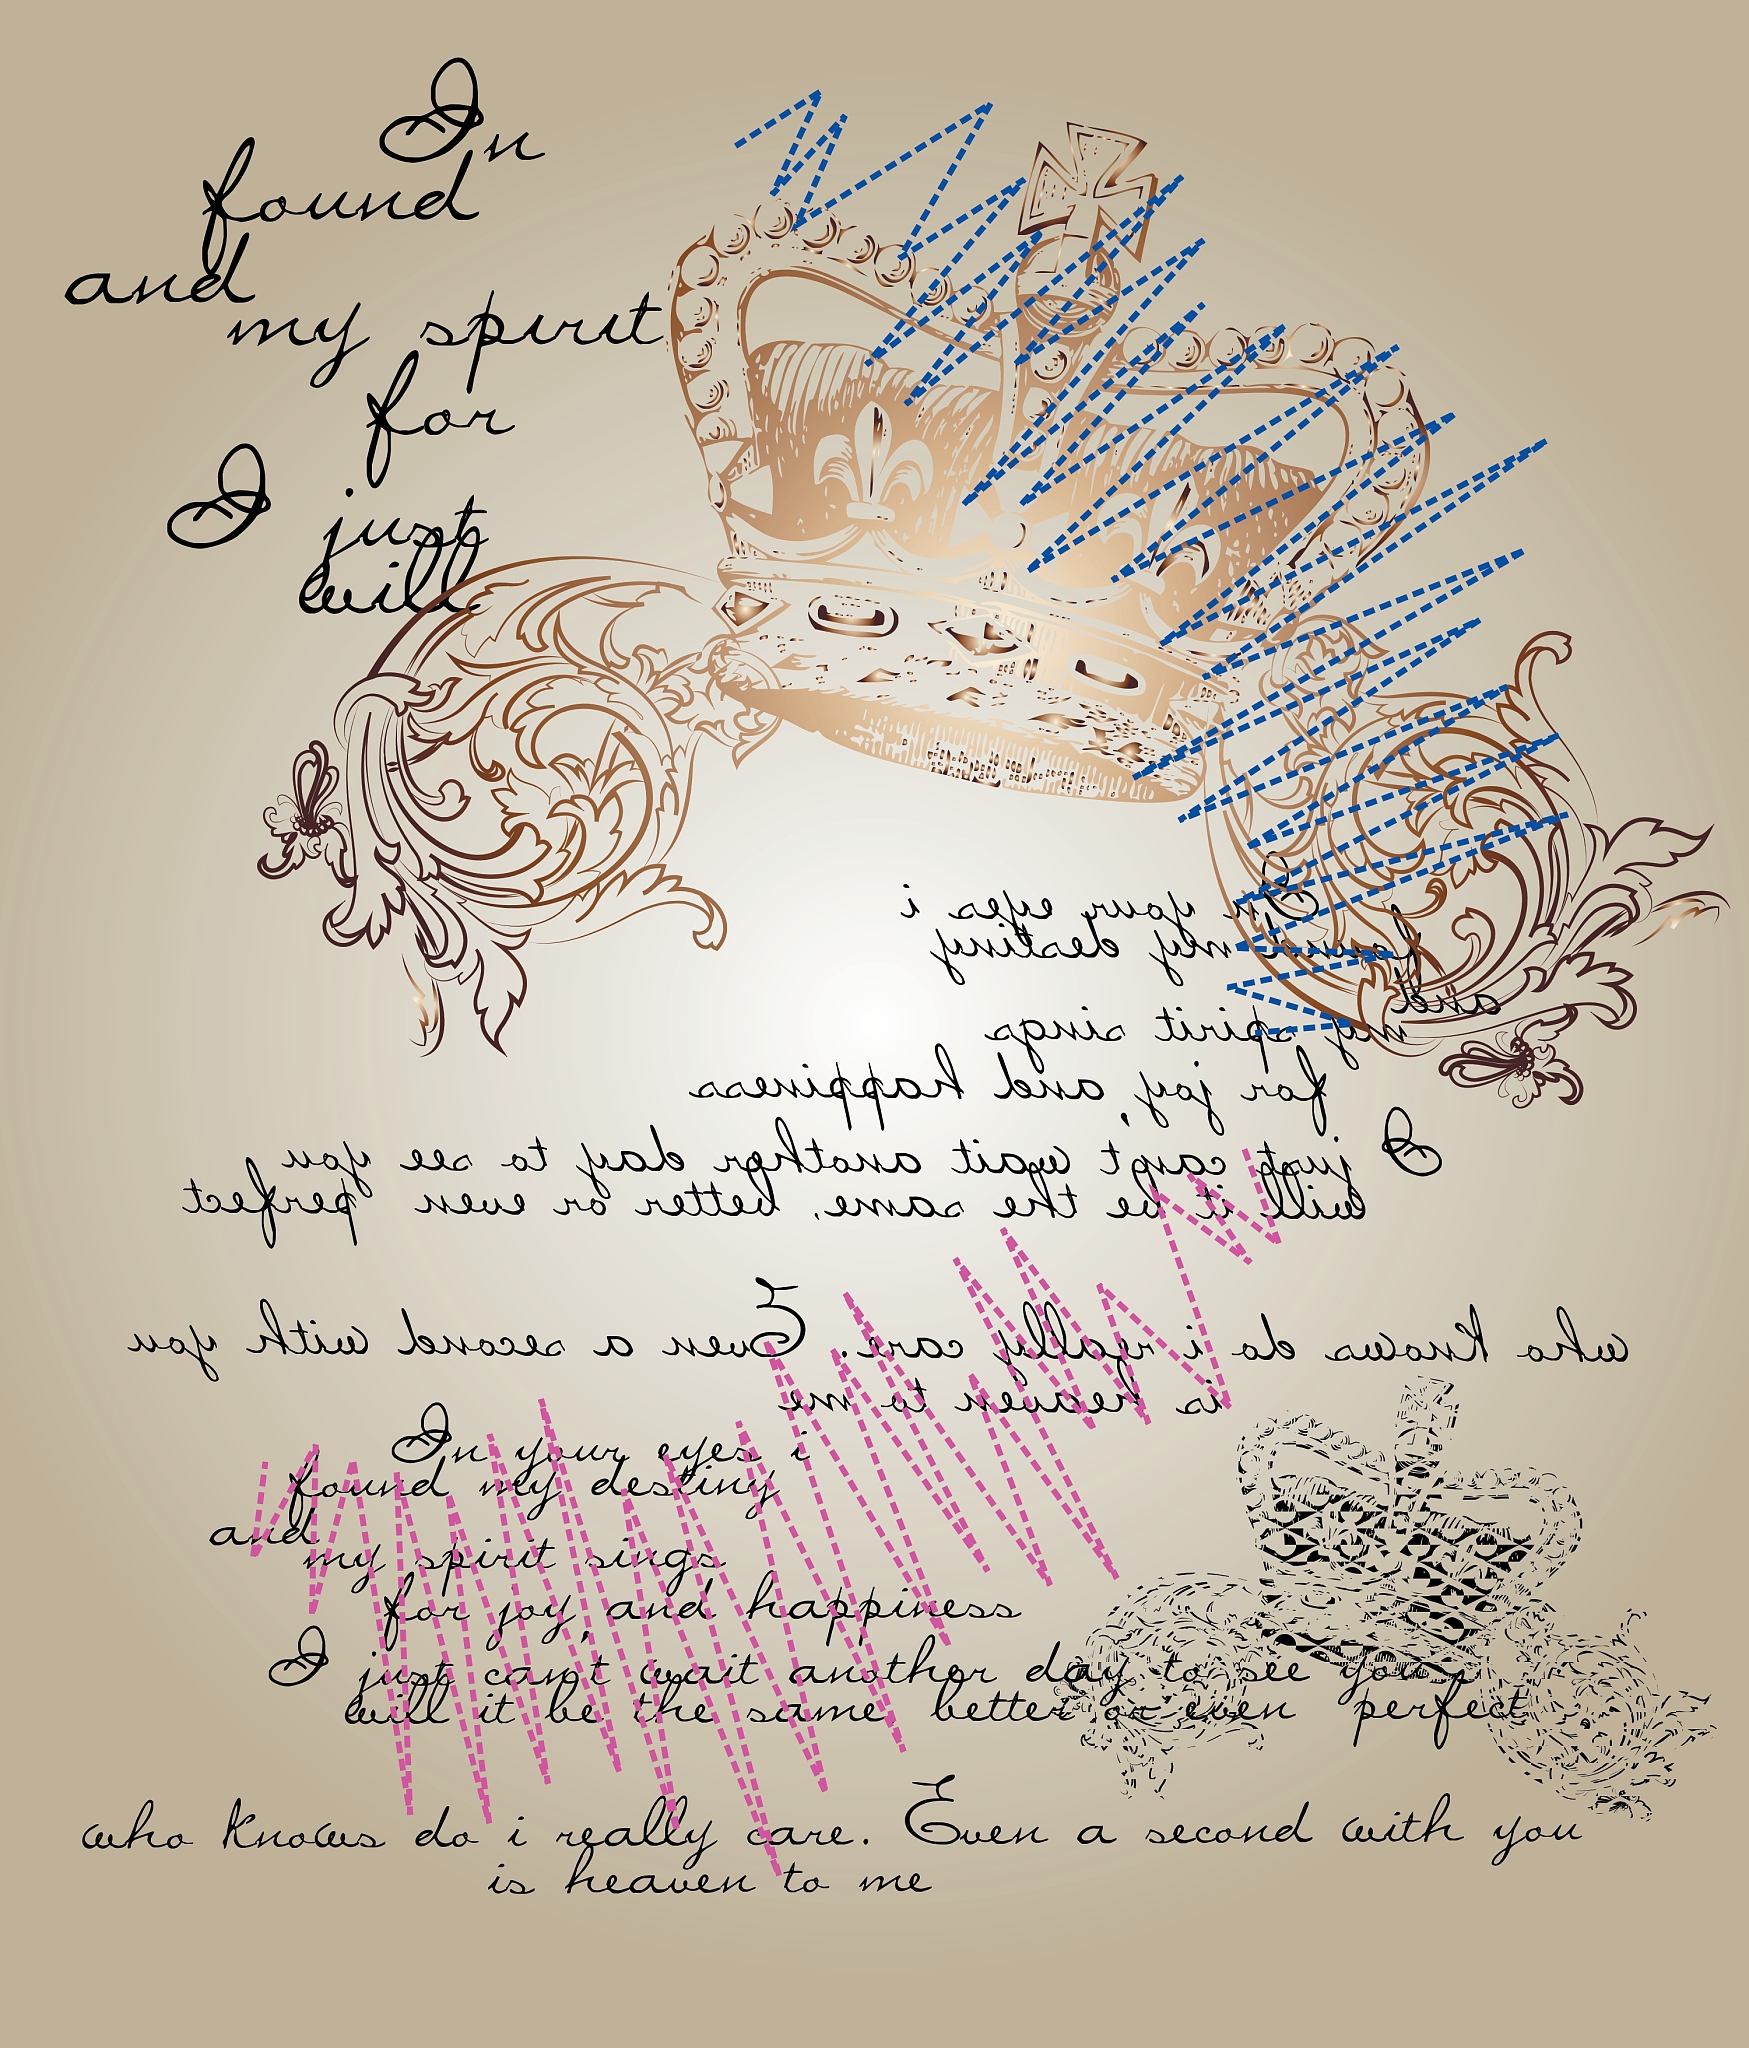 In
found
and
my spirit
for
I just
will
In your eyes i
found my destiny
and
my spirit sings
for joy, and happiness
I just can't wait another day to see you
will it be the same, better or even perfect
who knows do i really care. Even a second with you
is heaven to me
In your eyes i
found my destiny
and
my spirit sings
for joy, and happiness
I just can't wait another day to see you
will it be the same, better or even perfect
who knows do i really care. Even a second with you
is heaven to me